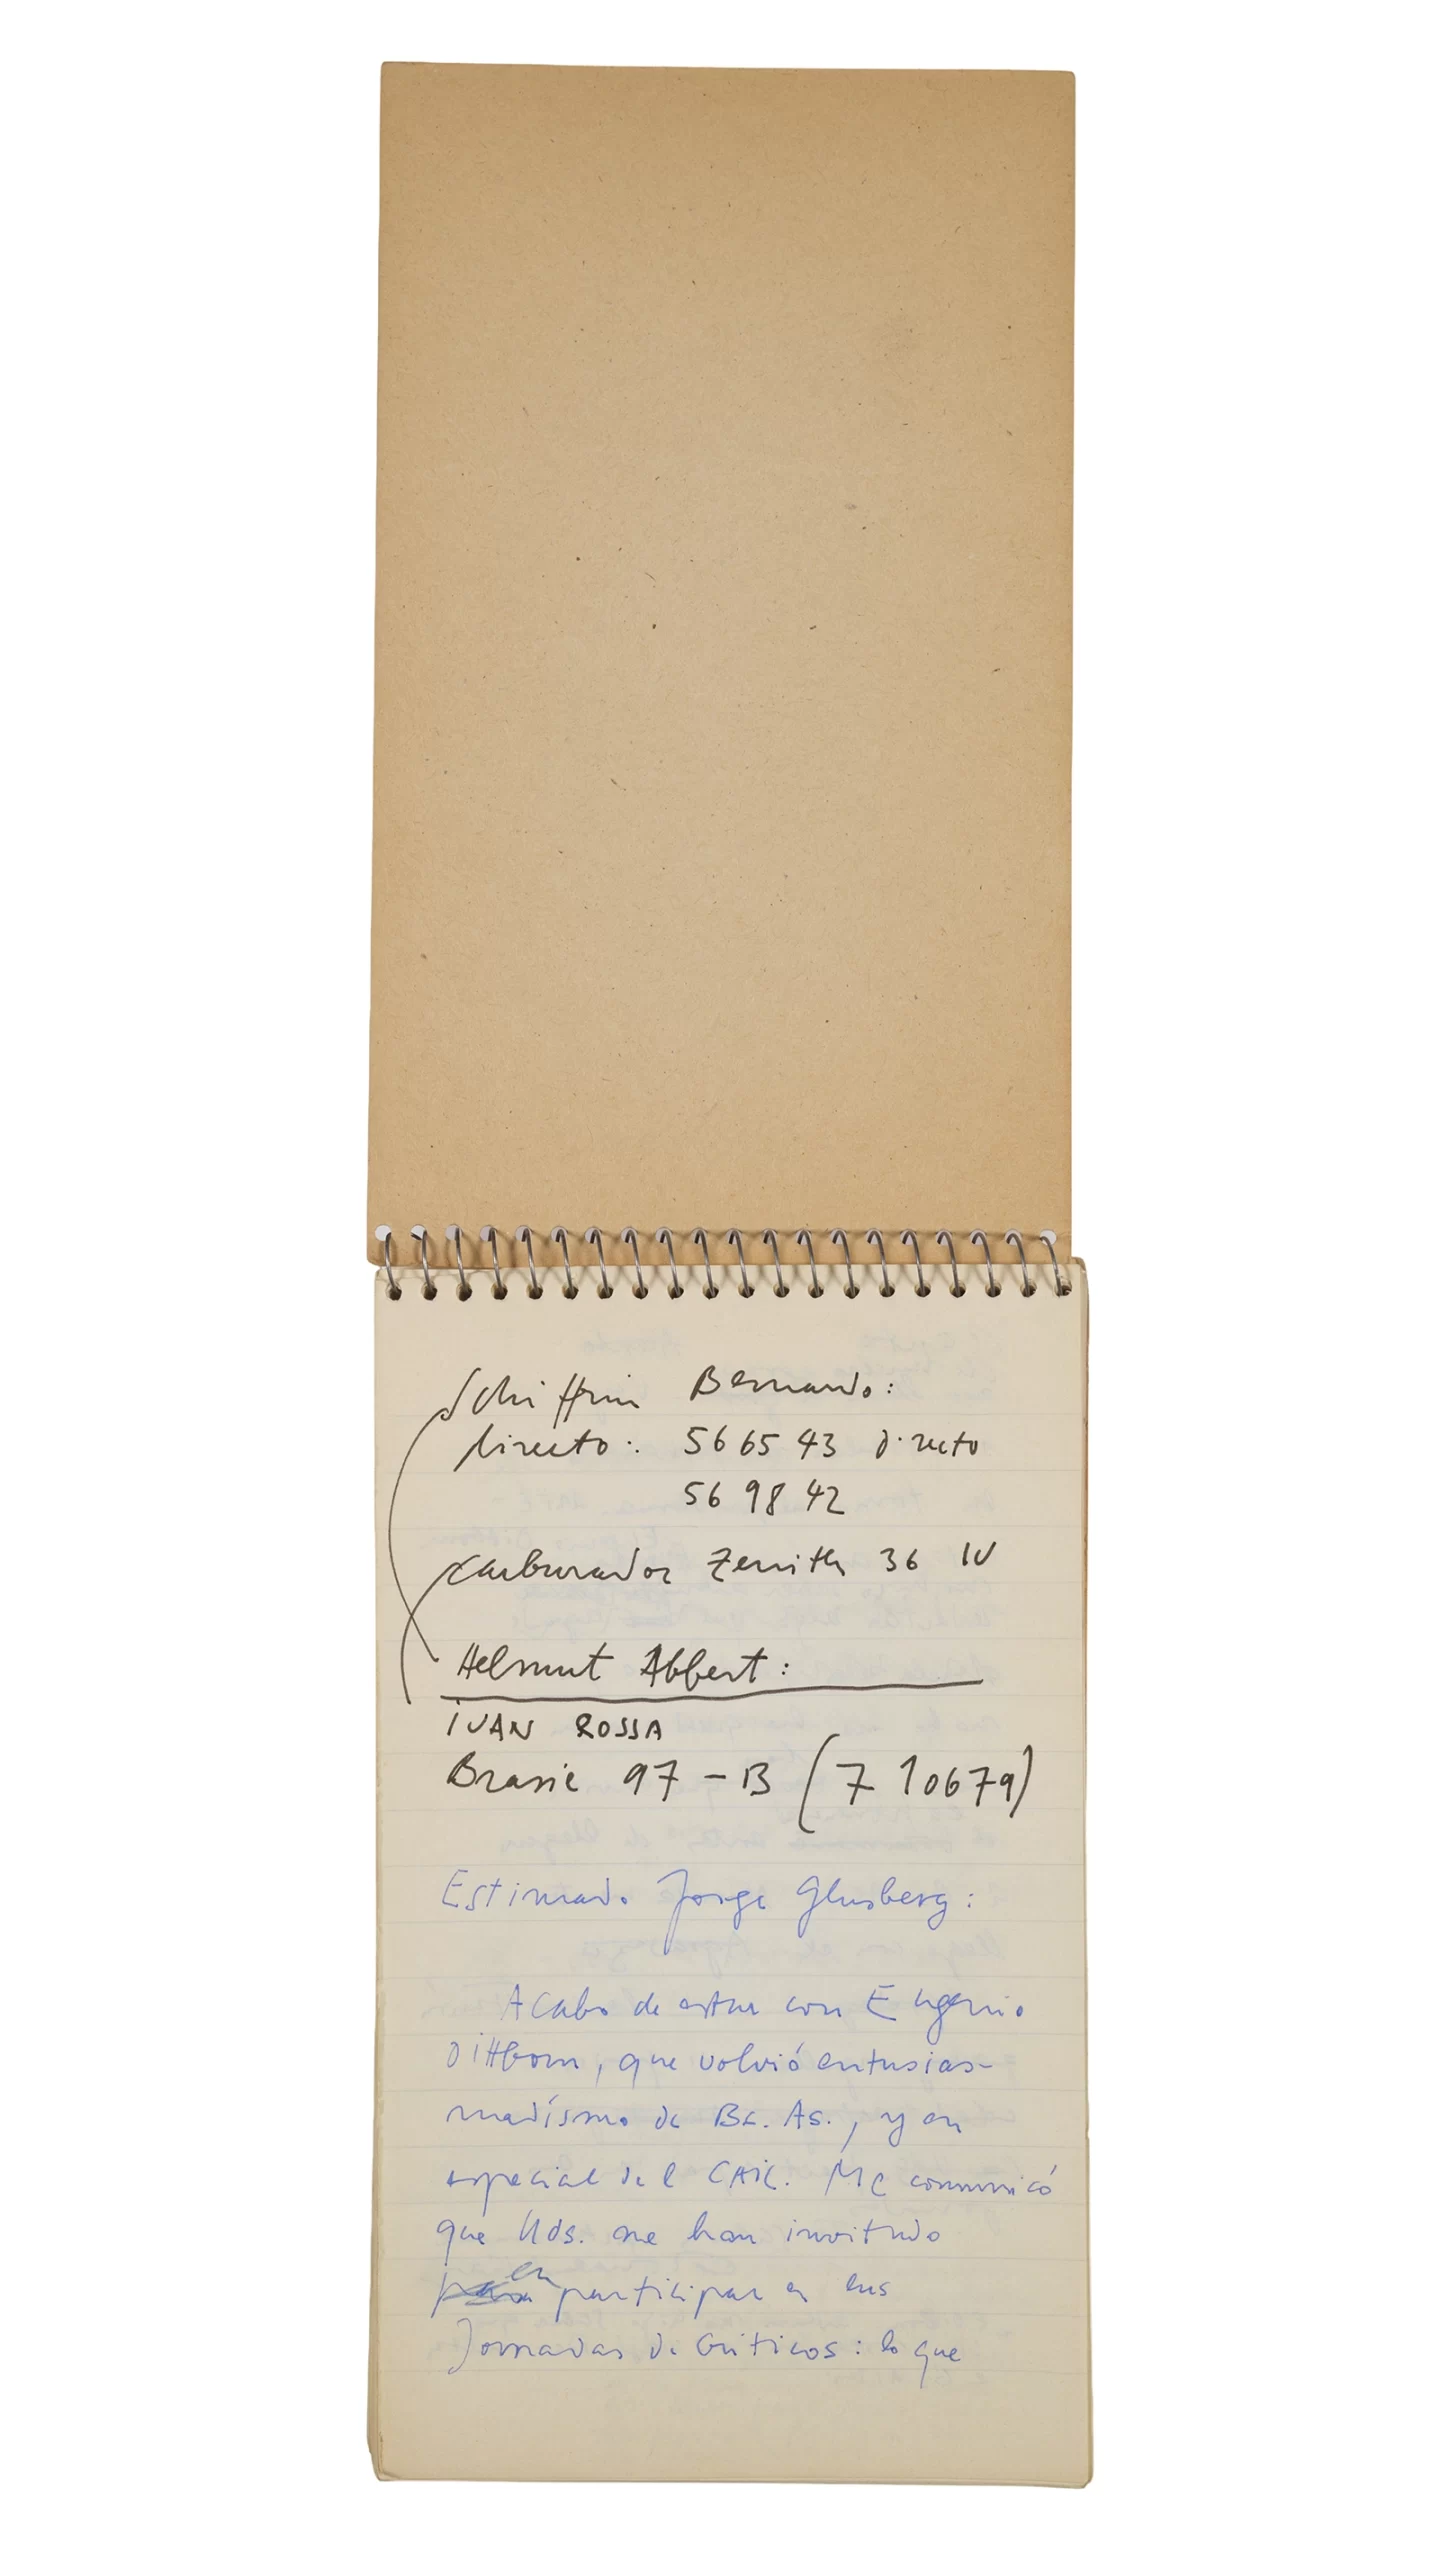 Schiffrin Bernardo:
Directo: 56 65 43 directo
56 98 42
Carburador Zenith 36 IV
Helmut Abbert:
IVAN ROSSA
Brasil 97 - B (710679)
Estimado Jorge Glusberg:
Acabo de estar con Eugenio
Dittborn, que volvió entusias-
madísmo de Bs. As., y en
especial del CAYC. Me comunicó
que Uds. me han invitado
para en participar en las
Jornadas de Críticos: lo que